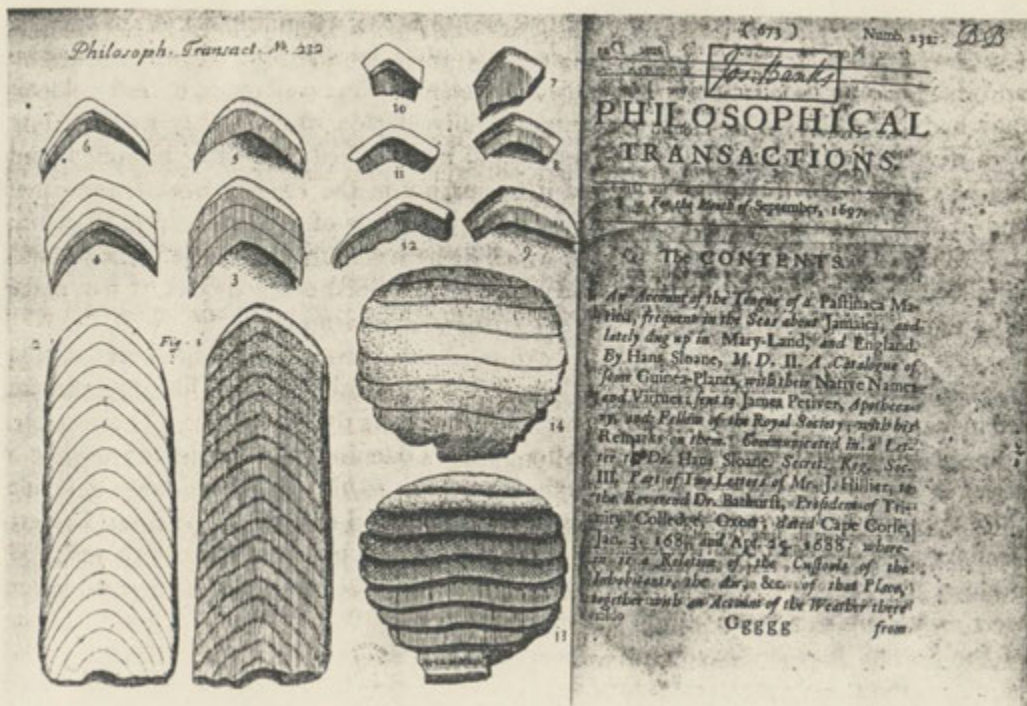 Philosoph. Transact. No. 232
10
7
6
5
11
8
4
3
12
9
2
Fig. 1
14
13
( 673 )
Numb. 232.
BB
Jos: Banks
PHILOSOPHICAL
TRANSACTIONS.
For the Month of September, 1697.
The CONTENTS.
An Account of the Tongue of a Pastinaca Ma-
rina, frequent in the Seas about Jamaica, and
lately dug up in Mary-Land, and England.
By Hans Sloane, M. D. II. A Catalogue of
some Guinea-Plants, with their Native Names
and Virtues; sent to James Petiver, Apotheca-
ry, and Fellow of the Royal Society; with his
Remarks on them. Communicated in a Let-
ter to Dr. Hans Sloane, Secret. Reg. Soc.
III. Part of Two Letters of Mr. J. Hillier, to
the Reverend Dr. Bathurst, President of Tri-
nity Colledge, Oxon; dated Cape Corse,
Jan. 3. and Apr. 25. 1688. where-
in is a Relation of the Customs of the
Inhabitants, the Air, &c. of that Place,
together with an Account of the Weather there
Ggggg
from